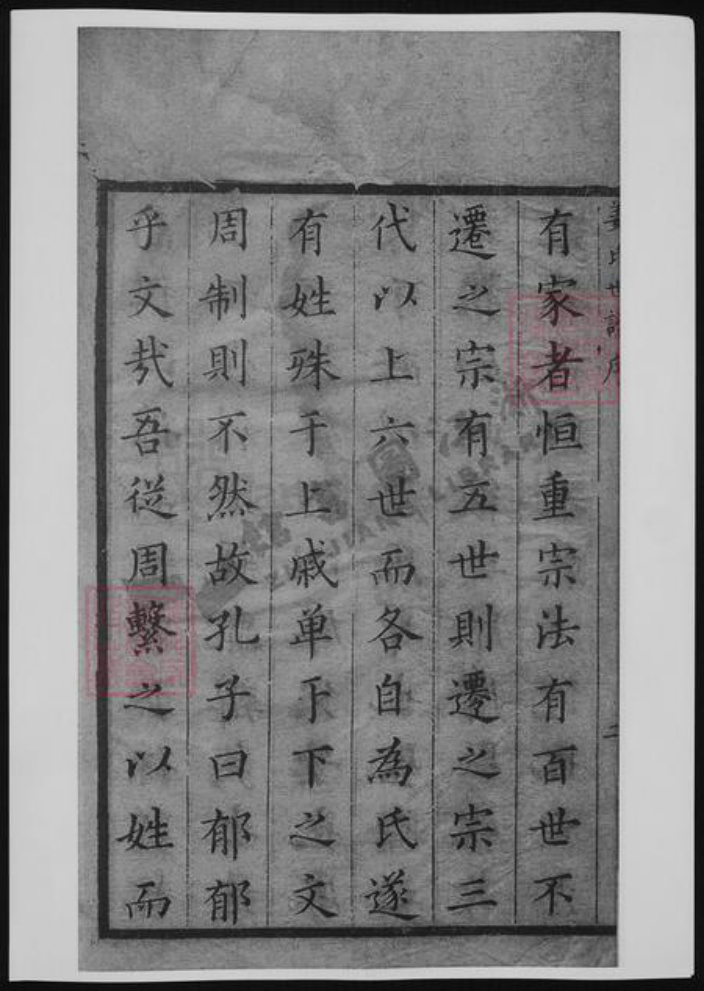 姜氏世譜序
有家者恒重宗法有百世不
遷之宗有五世則遷之宗三
代以上六世而各自為氏遂
有姓殊于上戚单于下之文
周制則不然故孔子曰郁郁
乎文哉吾從周繫之以姓而
二
LIBRARY